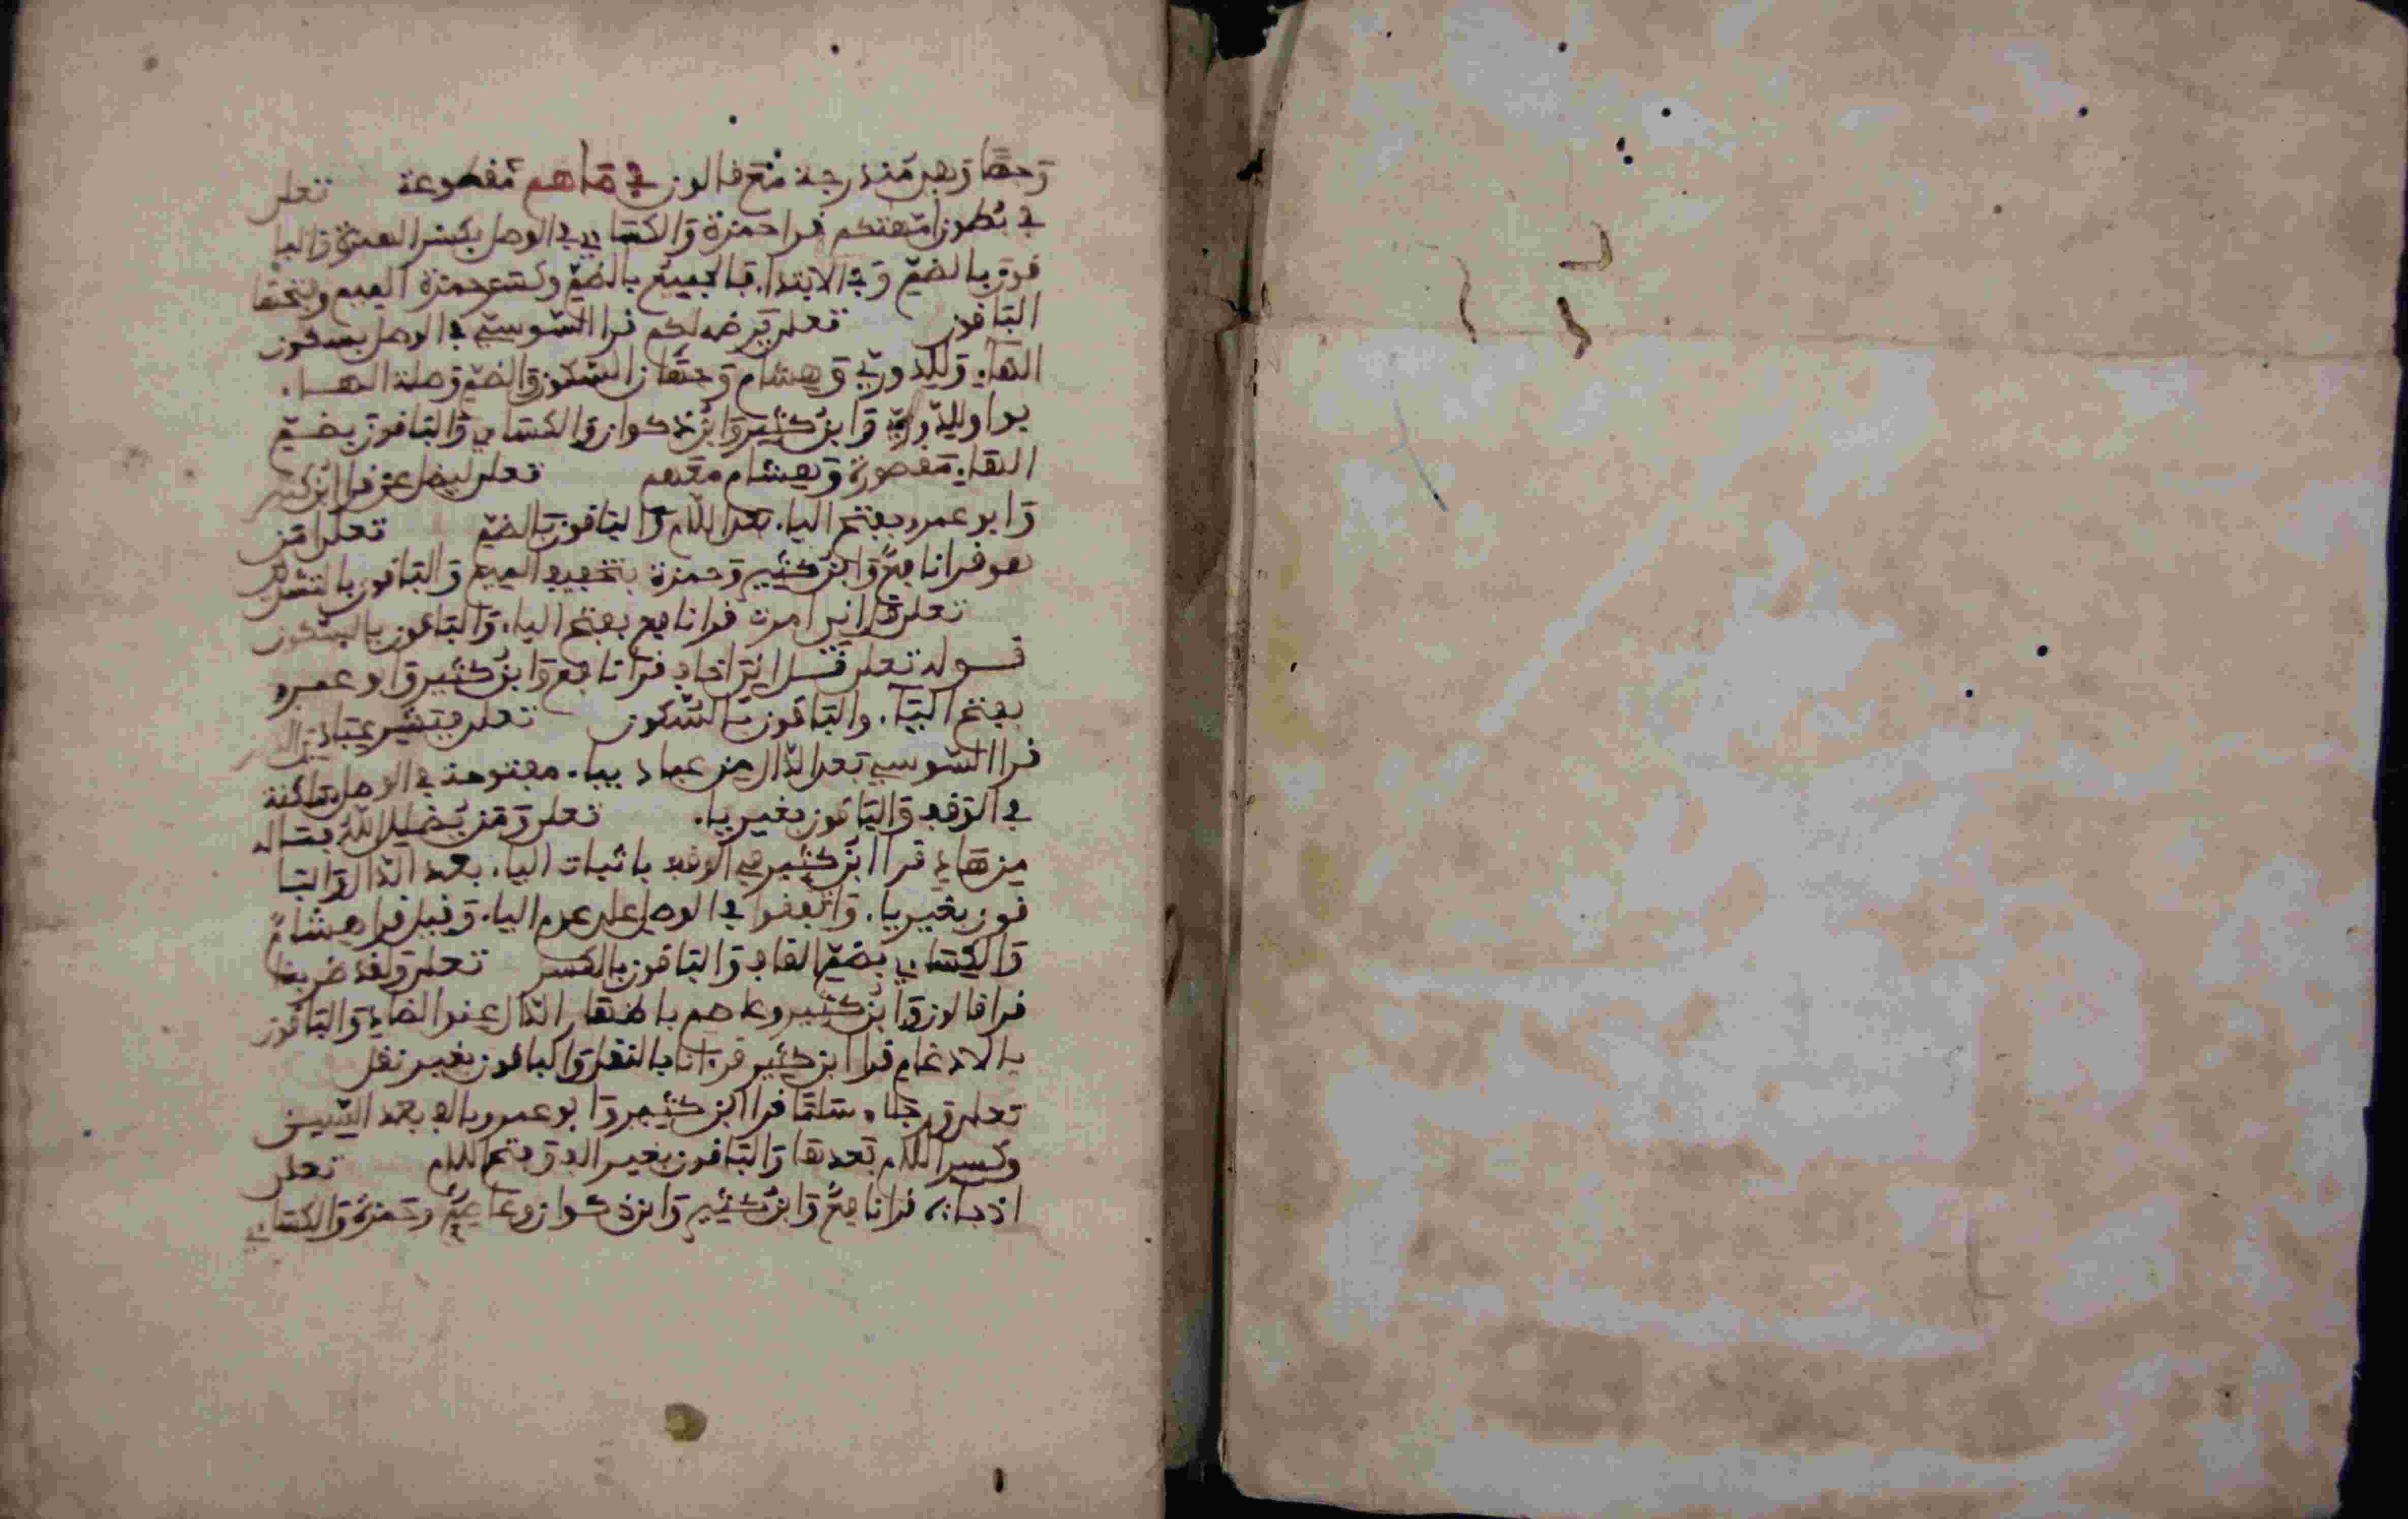 وجها وهي مندرجة مع قالون في ما هم مقطوعة تعلى
في بطون امهتكم قرا حمزة والكساي في الوصل بكسر الهمزة والبا
قون بالضم وفي الابتدا. فالجميع بالضم وكسر حمزة الميم وفتحها
الباقون تعلى يرضه لكم قرا السوسي في الوصل بسكون
الهاء وللدوري وهشام وجهان السكون والضم وصلة الهاء.
بواو للدوري وابن كثير وابن ذكوان والكساي والباقون بضم
الهاء. مقصورة وهشام معهم تعلى ليضل عن قرا ابن كثير
وابو عمرو بفتح الياء. بعد اللام والباقون بالضم تعلى امن
هو قرا نافع وابن كثير وحمزة بتخفيف الميم والباقون بالتشديد
تعلى قل اني امرت قرا نافع بفتح الياء. والباقون بالسكون
قوله تعلى قل اني اخاف قرا نافع وابن كثير وابو عمرو
بفتح الياء. والباقون بالسكون تعلى فبشر عباد الذين
قرا السوسي بعد الدال من عباد بياء. مفتوحة في الوصل ساكنة
في الوقف والباقون بغير ياء. تعلى ومن يضلل الله فما له
من هاد قرا ابن كثير في الوقف باثبات الياء. بعد الدال والبا
قون بغير ياء. واتفقوا في الوصل على عدم الياء. وقيل قرا هشام
والكساي بضم القاف والباقون بالكسر تعلى ولقد ضربنا
قرا قالون وابن كثير وعاصم باظهار الدال عند الضاد والباقون
بالادغام قرا ابن كثير قرءانا بالنقل والباقون بغير نقل
تعلى ورجلا سلما قرا ابن كثير وابو عمرو بالف بعد السين
وكسر اللام بعدها والباقون بغير الف وفتح اللام تعلى
اذ جاءه قرا نافع وابن كثير وابن ذكوان وعاصم وحمزة والكساي